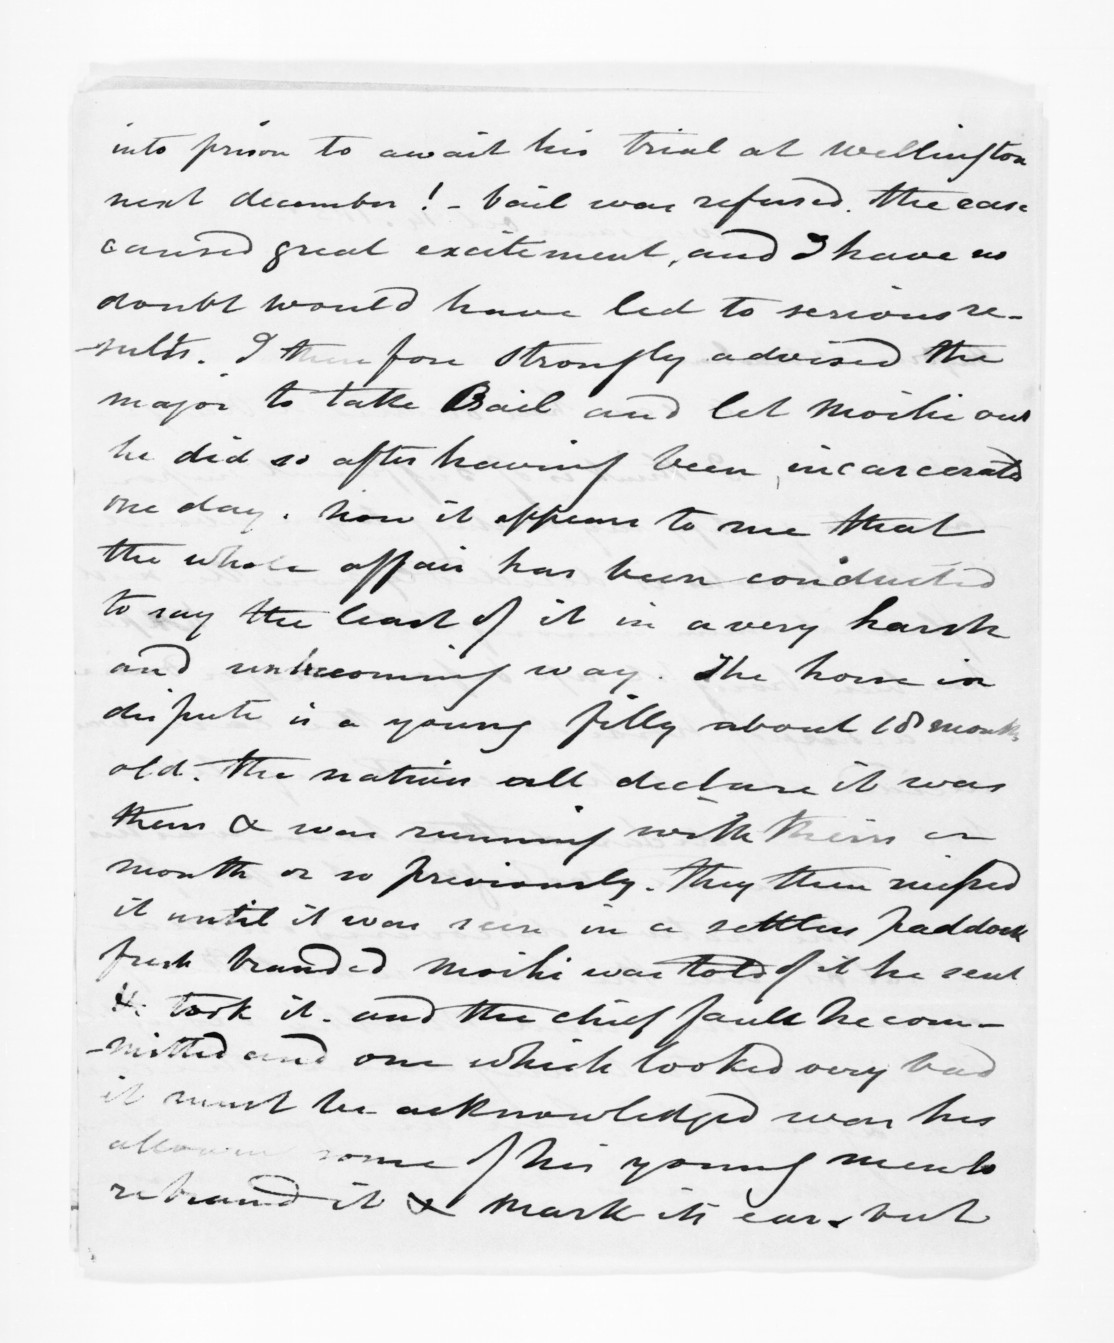 into prison to await his trial at Wellington
next december! - bail was refused. the case
caused great excitement, and I have no
doubt would have led to serious re-
-sults. I therefore strongly advised the
major to take Bail and let Moihi out
he did so after having been incarcerated
one day. now it appears to me that
the whole affair has been conducted
to say the least of it in a very harsh
and unbecoming way. The horse in
dispute is a young filly about 18 months
old. the natives all declare it was
theirs & was running with theirs a
month or so previously. they then missed
it until it was seen in a settlers paddock
fresh branded Moihi was told of it he sent
& took it. and the chief fault he com-
-mitted and one which looked very bad
it must be acknowledged was his
allowing some of his young men to
rebrand it & mark its ear. but